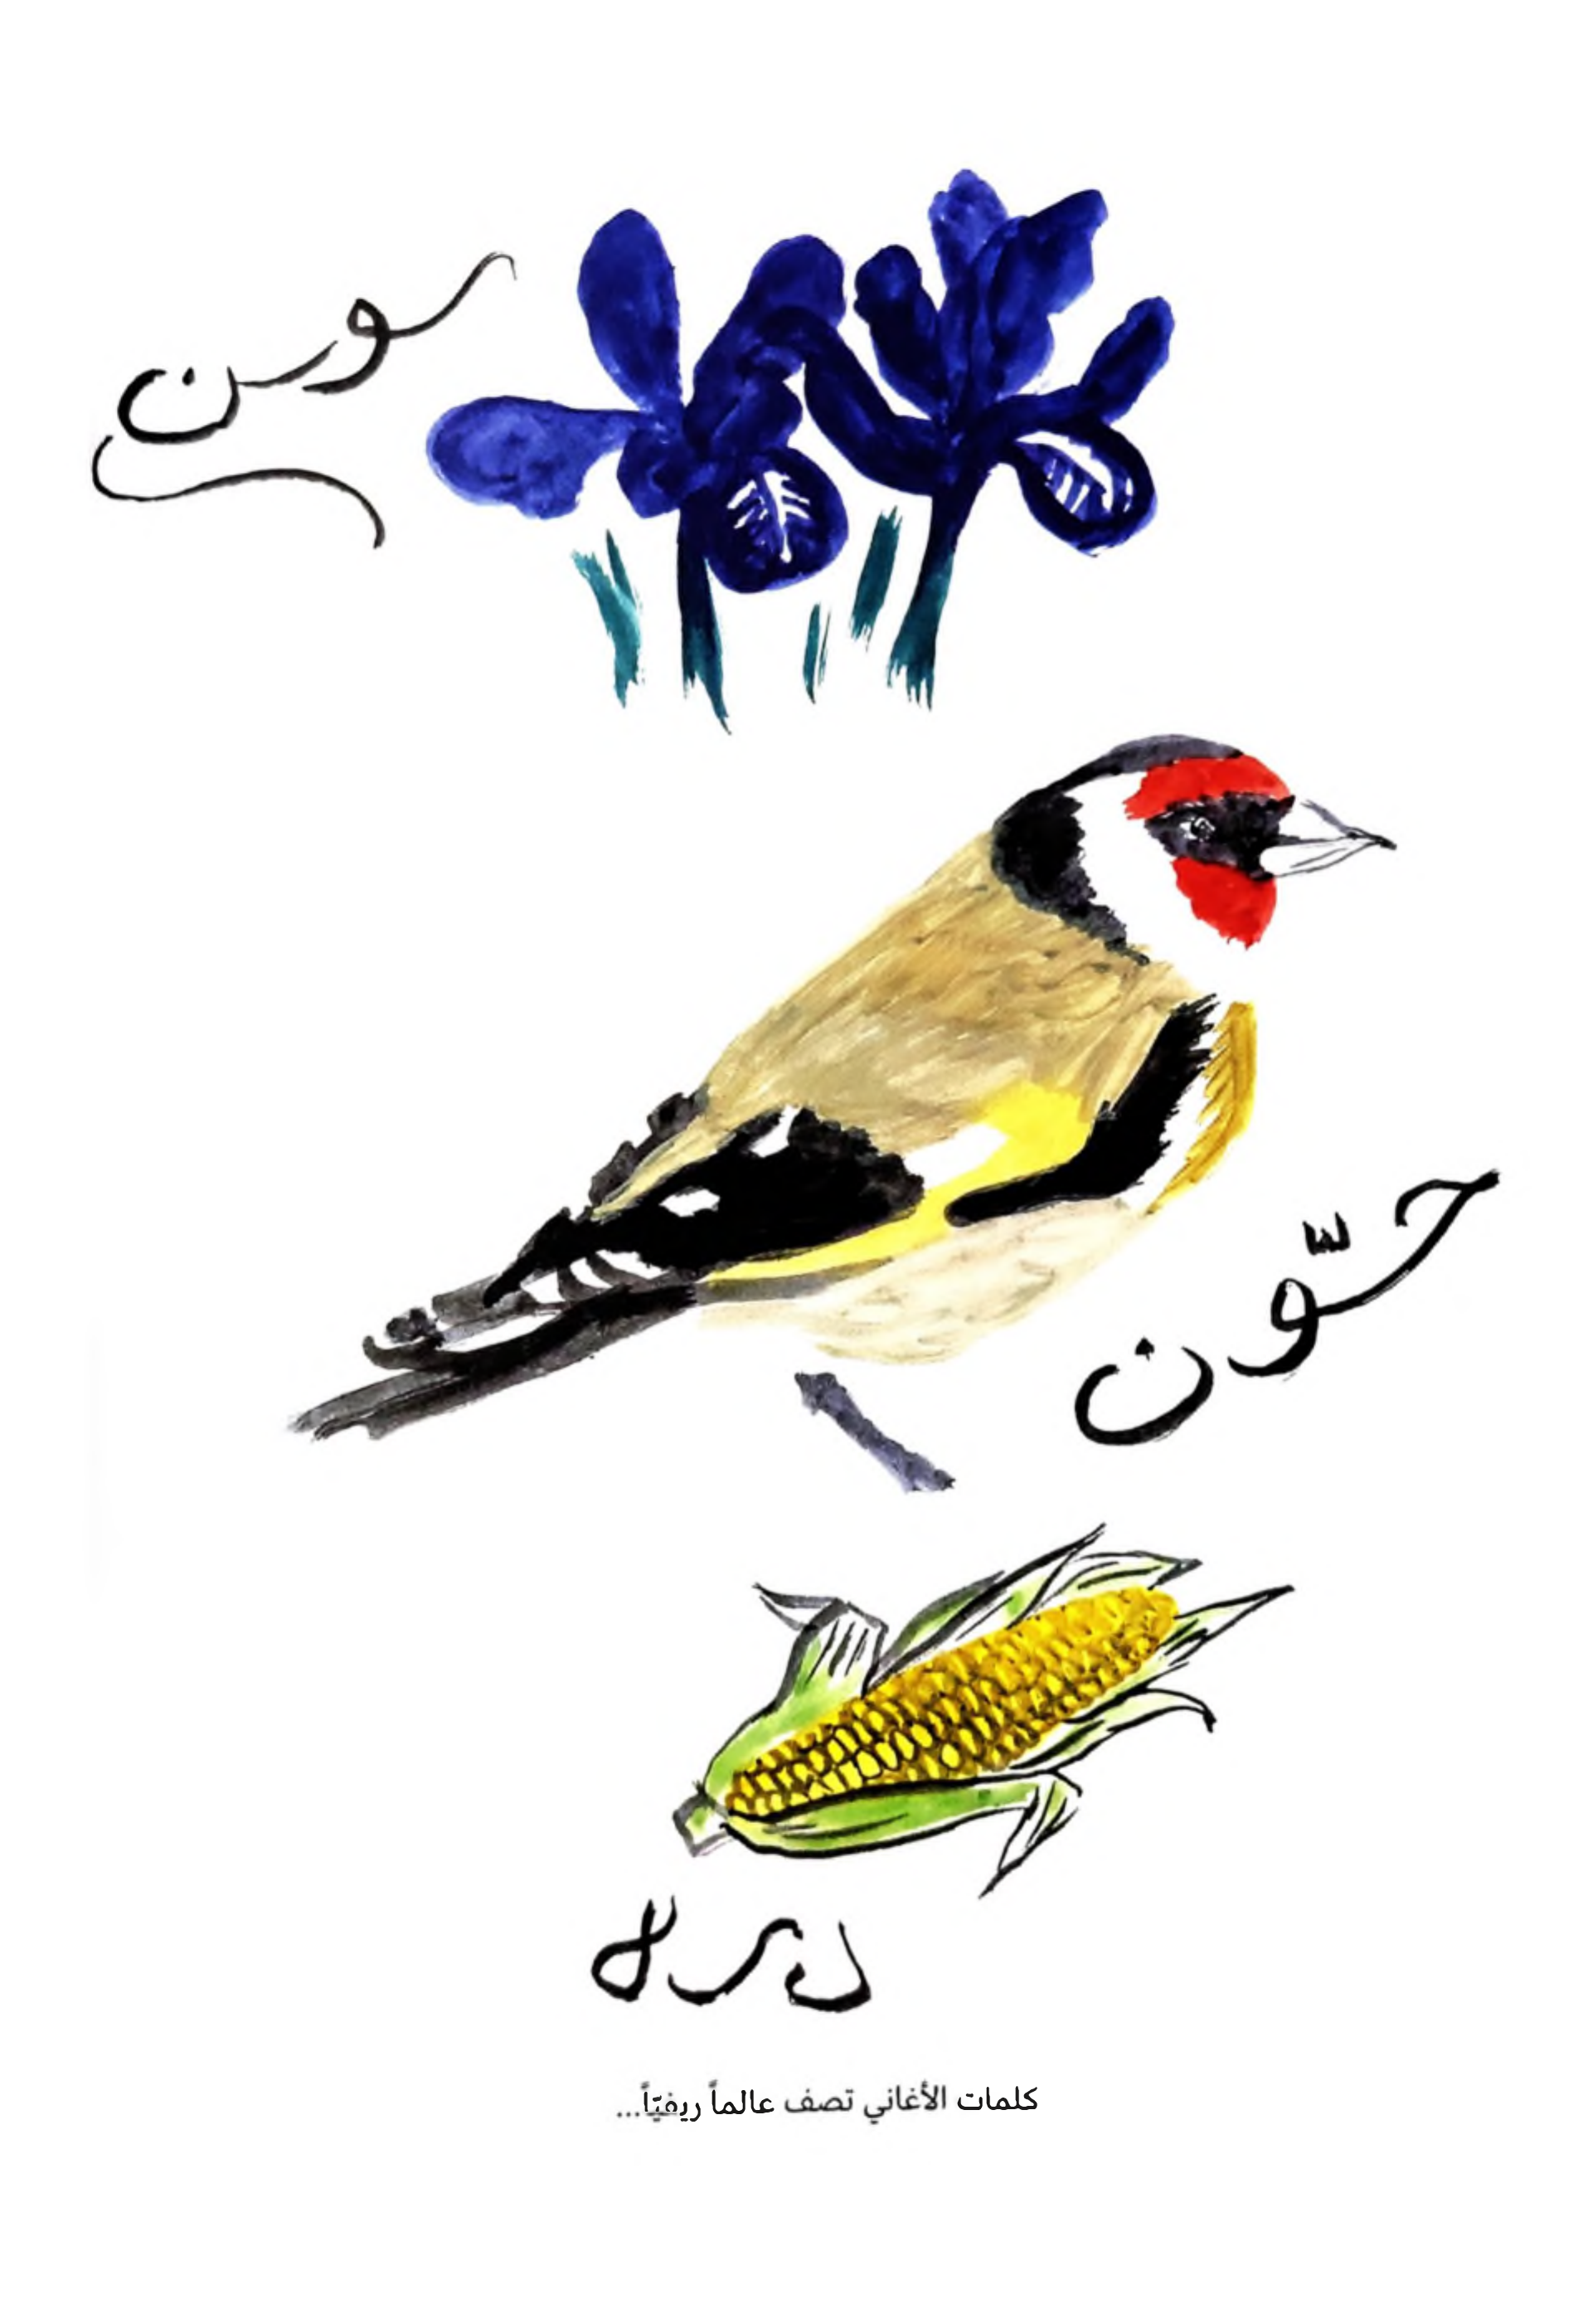 سوسن
حسّون
ذرة
كلمات الأغاني تصف عالماً ريفيّاً...